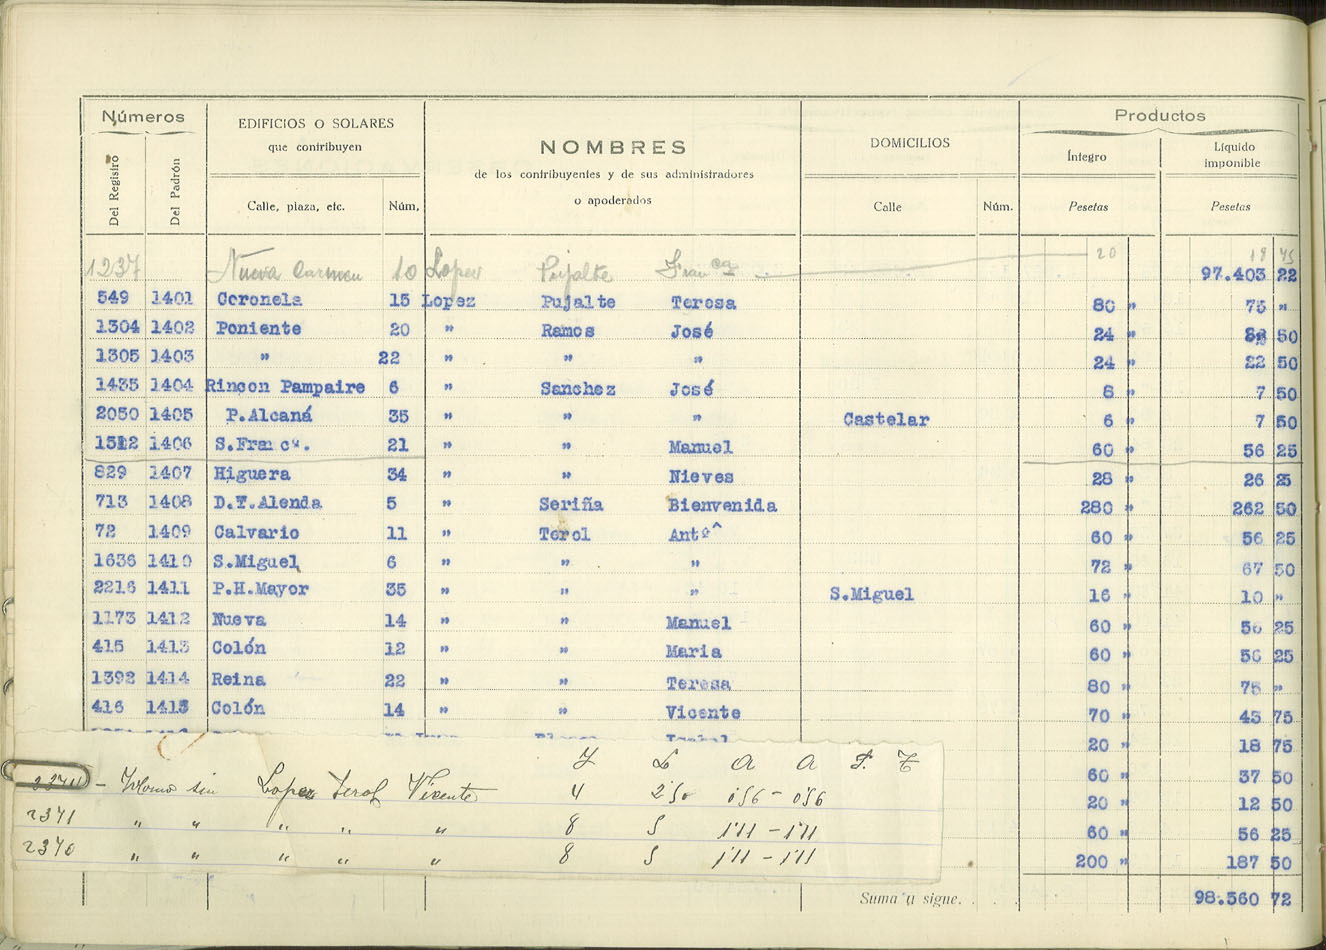 Números
EDIFICIOS O SOLARES
que contribuyen
NOMBRES
de los contribuyentes y de sus administradores
o apoderados
DOMICILIOS
Productos
Del Registro
Del Padrón
Calle, plaza, etc.
Núm.
Calle
Núm.
Íntegro
Líquido imponible
Pesetas
Pesetas
1237 Nueva Carmen 10 Lopez Pujalte Fran^ca 20 18 75
97.403 22
549 1401 Coronela 15 Lopez Pujalte Teresa 80 " 75 "
1304 1402 Poniente 20 " Ramos José 24 " 50
1305 1403 " 22 " " " 24 " 22 50
1435 1404 Rincon Pampaire 6 " Sanchez José 8 " 7 50
2050 1405 P.Alcaná 35 " " " Castelar 6 " 7 50
1406 S.Franc^a. 21 " " Manuel 60 " 56 25
829 1407 Higuera 34 " " Nieves 28 " 26 25
713 1408 D.T.Alenda 5 " Seriña Bienvenida 280 " 262 50
72 1409 Calvario 11 " Terol Antº^ 60 " 56 25
1636 1410 S.Miguel 6 " " " 72 " 67 50
2216 1411 P.H.Mayor 35 " " " S.Miguel 16 " 10 "
1173 1412 Nueva 14 " " Manuel 60 " 56 25
415 1413 Colón 12 " " Maria 60 " 56 25
1392 1414 Reina 22 " " Teresa 80 " 75 "
416 1415 Colón 14 " " Vicente 70 " 43 75
20 " 18 75
60 " 37 50
20 " 12 50
60 " 56 25
200 " 187 50
sin Lopez Terol Vicente 4 2'50 0'56 - 0'56
2371 " " " " " 8 5 1'11 - 1'11
2370 " " " " " 8 5 1'11 - 1'11
Suma y sigue. . . . 98.560 72